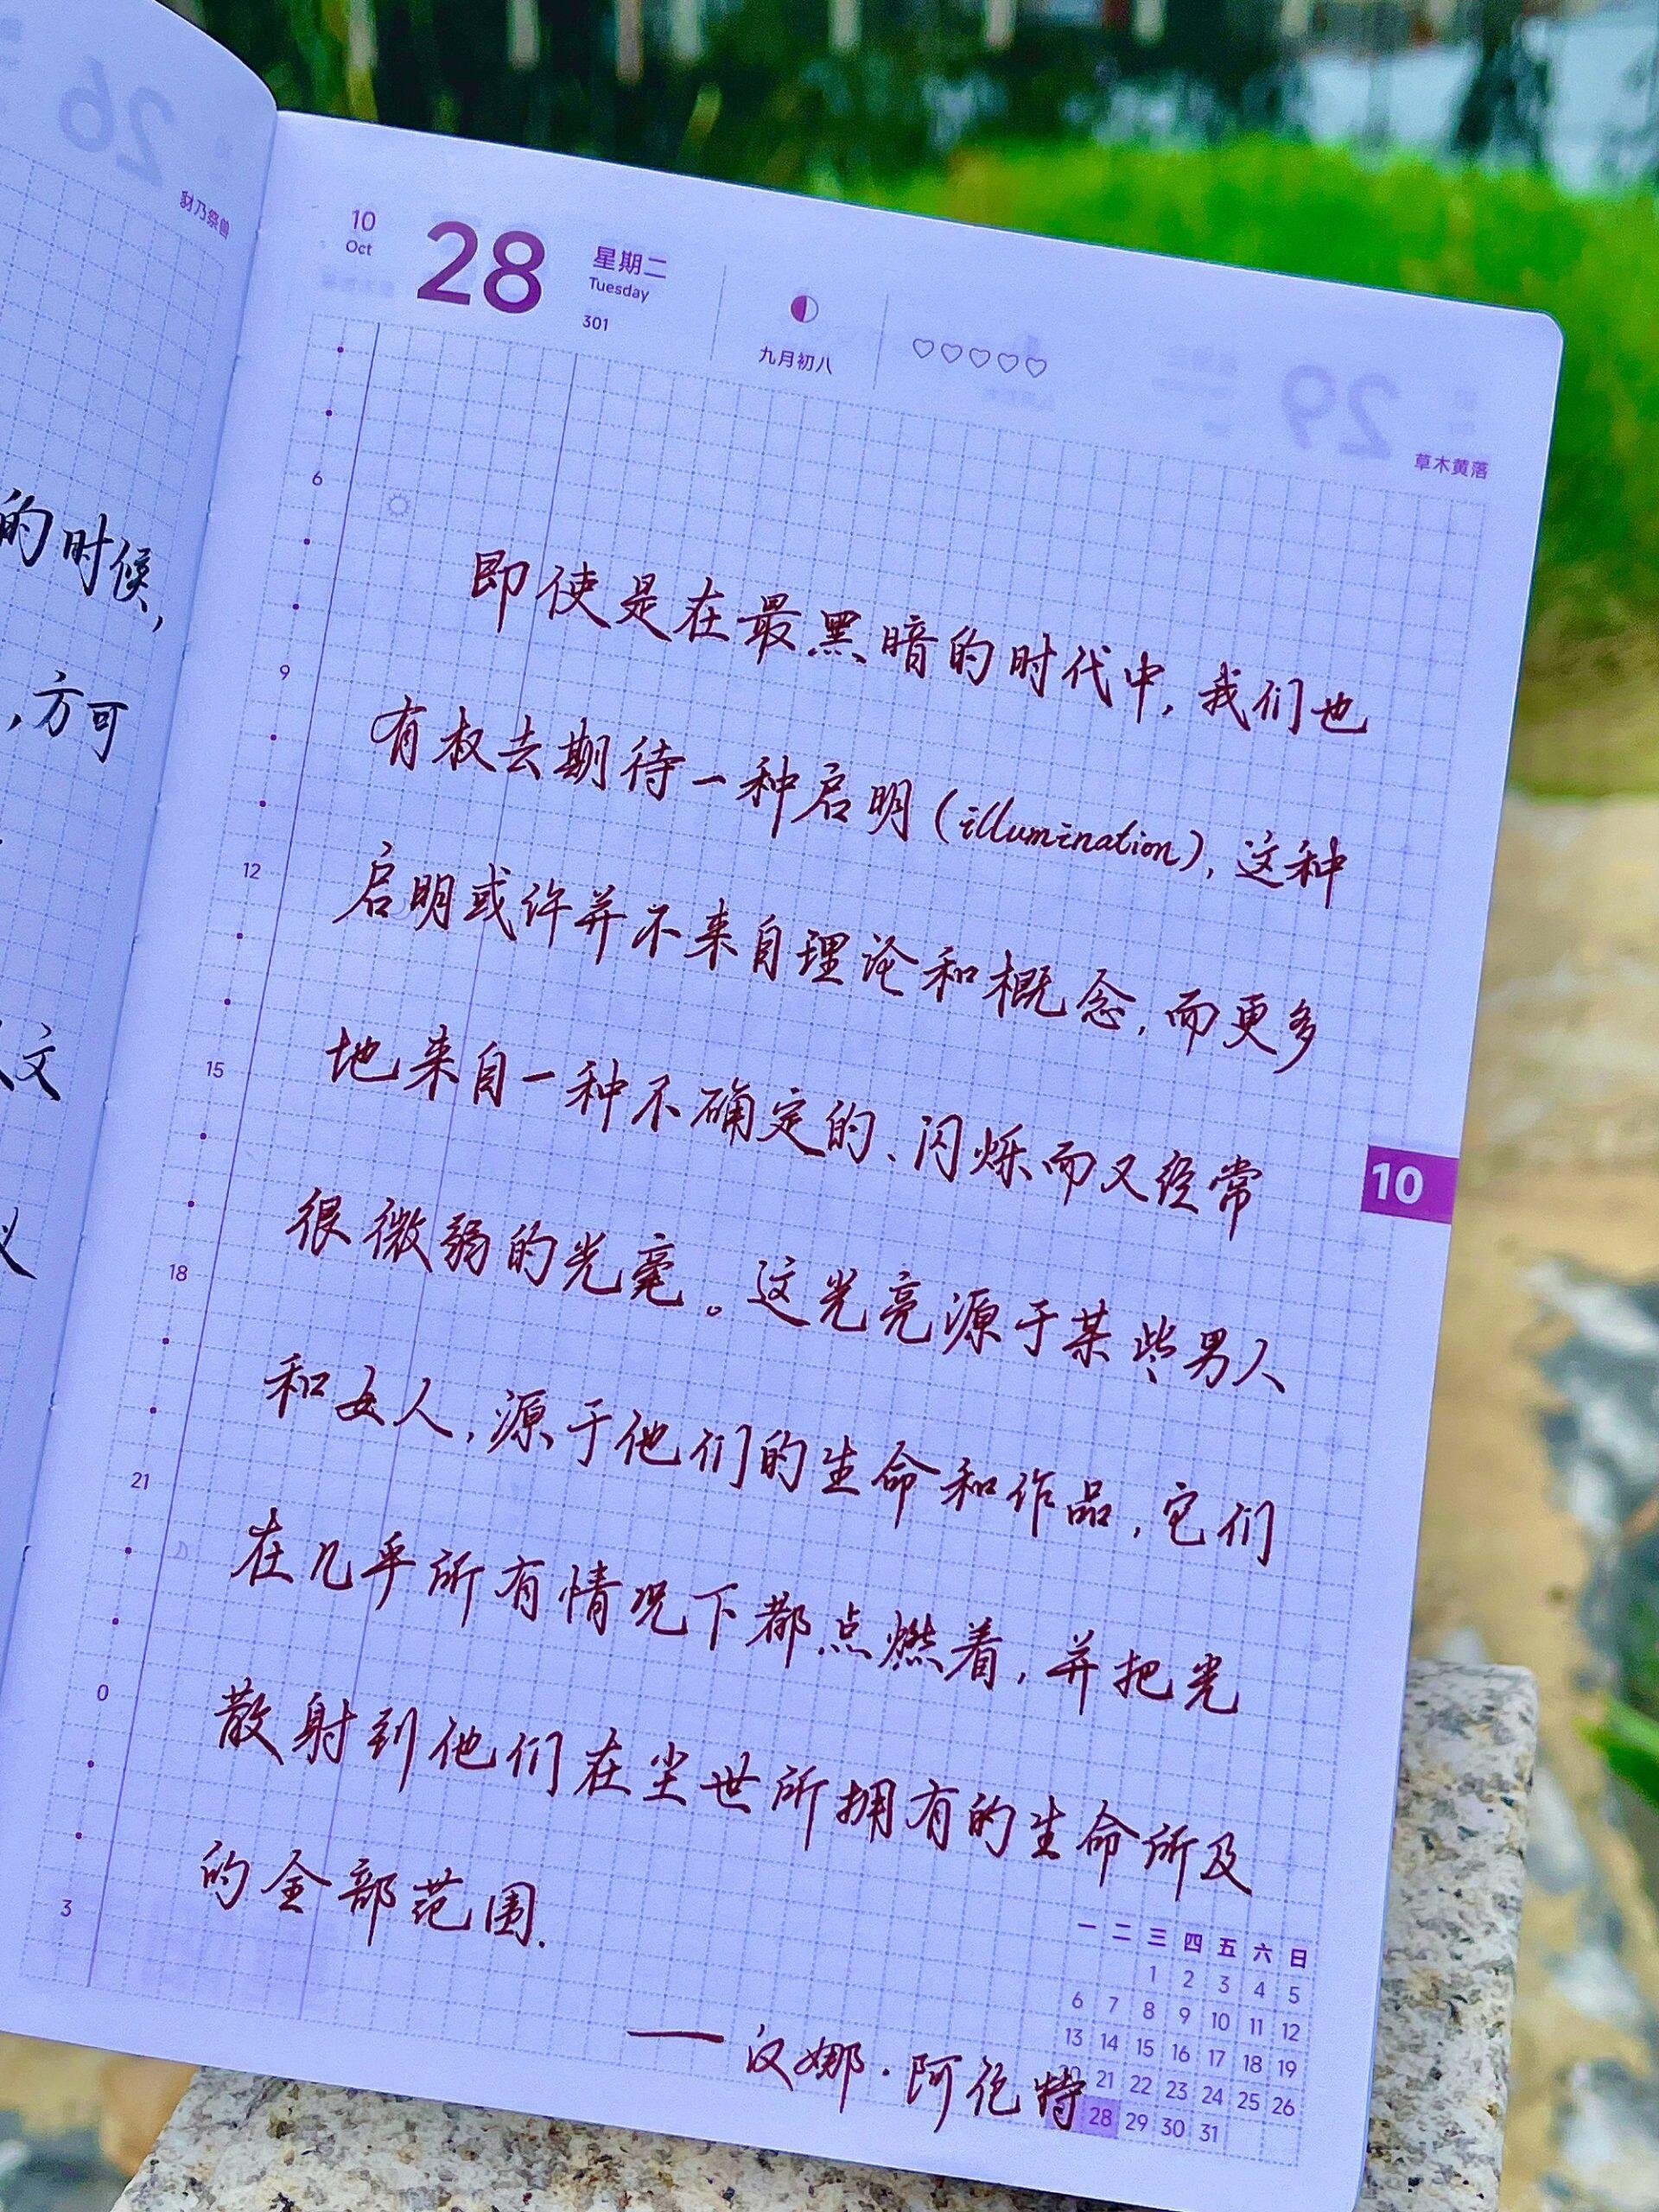 26
豺乃祭兽
的时候,
,方可
文
10
Oct
28
星期二
Tuesday
301
九月初八
29
草木黄落
6
9
12
15
18
21
0
3
即使是在最黑暗的时代中,我们也
有权去期待一种启明(illumination),这种
启明或许并不来自理论和概念,而更多
地来自一种不确定的、闪烁而又经常
很微弱的光亮。这光亮源于某些男人
和女人,源于他们的生命和作品,它们
在几乎所有情况下都点燃着,并把光
散射到他们在尘世所拥有的生命所及
的全部范围.
——汉娜·阿伦特
10
一 二 三 四 五 六 日
1 2 3 4 5
6 7 8 9 10 11 12
13 14 15 16 17 18 19
21 22 23 24 25 26
28 29 30 31